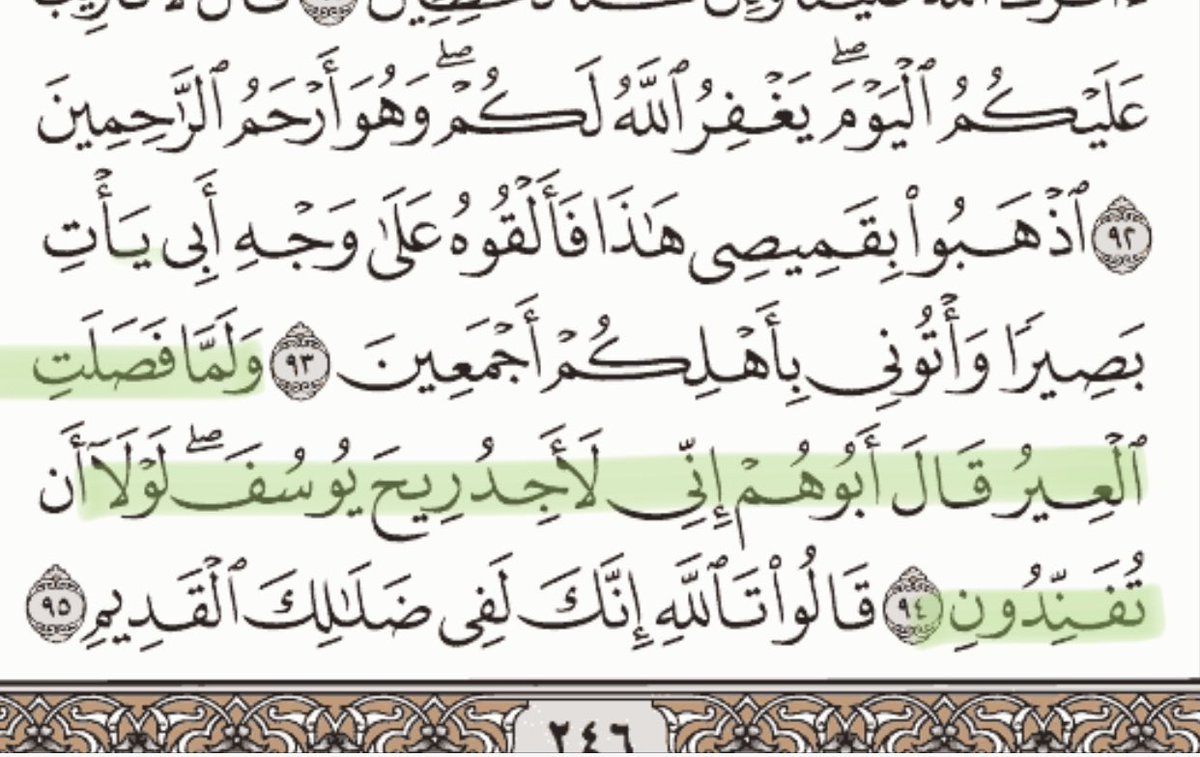 عَلَيْكُمُ ٱلْيَوْمَ ۖ يَغْفِرُ ٱللَّهُ لَكُمْ ۖ وَهُوَ أَرْحَمُ ٱلرَّٰحِمِينَ
٩٢ ٱذْهَبُوا۟ بِقَمِيصِى هَٰذَا فَأَلْقُوهُ عَلَىٰ وَجْهِ أَبِى يَأْتِ
بَصِيرًا وَأْتُونِى بِأَهْلِكُمْ أَجْمَعِينَ ٩٣ وَلَمَّا فَصَلَتِ
ٱلْعِيرُ قَالَ أَبُوهُمْ إِنِّى لَأَجِدُ رِيحَ يُوسُفَ ۖ لَوْلَآ أَن
تُفَنِّدُونِ ٩٤ قَالُوا۟ تَٱللَّهِ إِنَّكَ لَفِى ضَلَٰلِكَ ٱلْقَدِيمِ ٩٥
٢٤٦